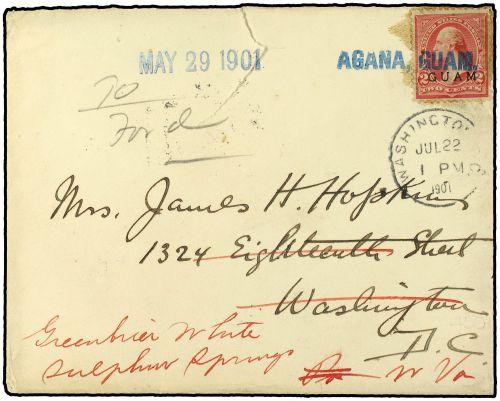 MAY 29 1901 AGANA, GUAM,
GUAM
TWO CENTS
To
Ford
WASHINGTON
JUL 22
1 PM
1901
Mrs. James H. Hopkins
1324 Eighteenth Street
Washington
D.C.
Greenbrier White
Sulphur Springs
W Va.